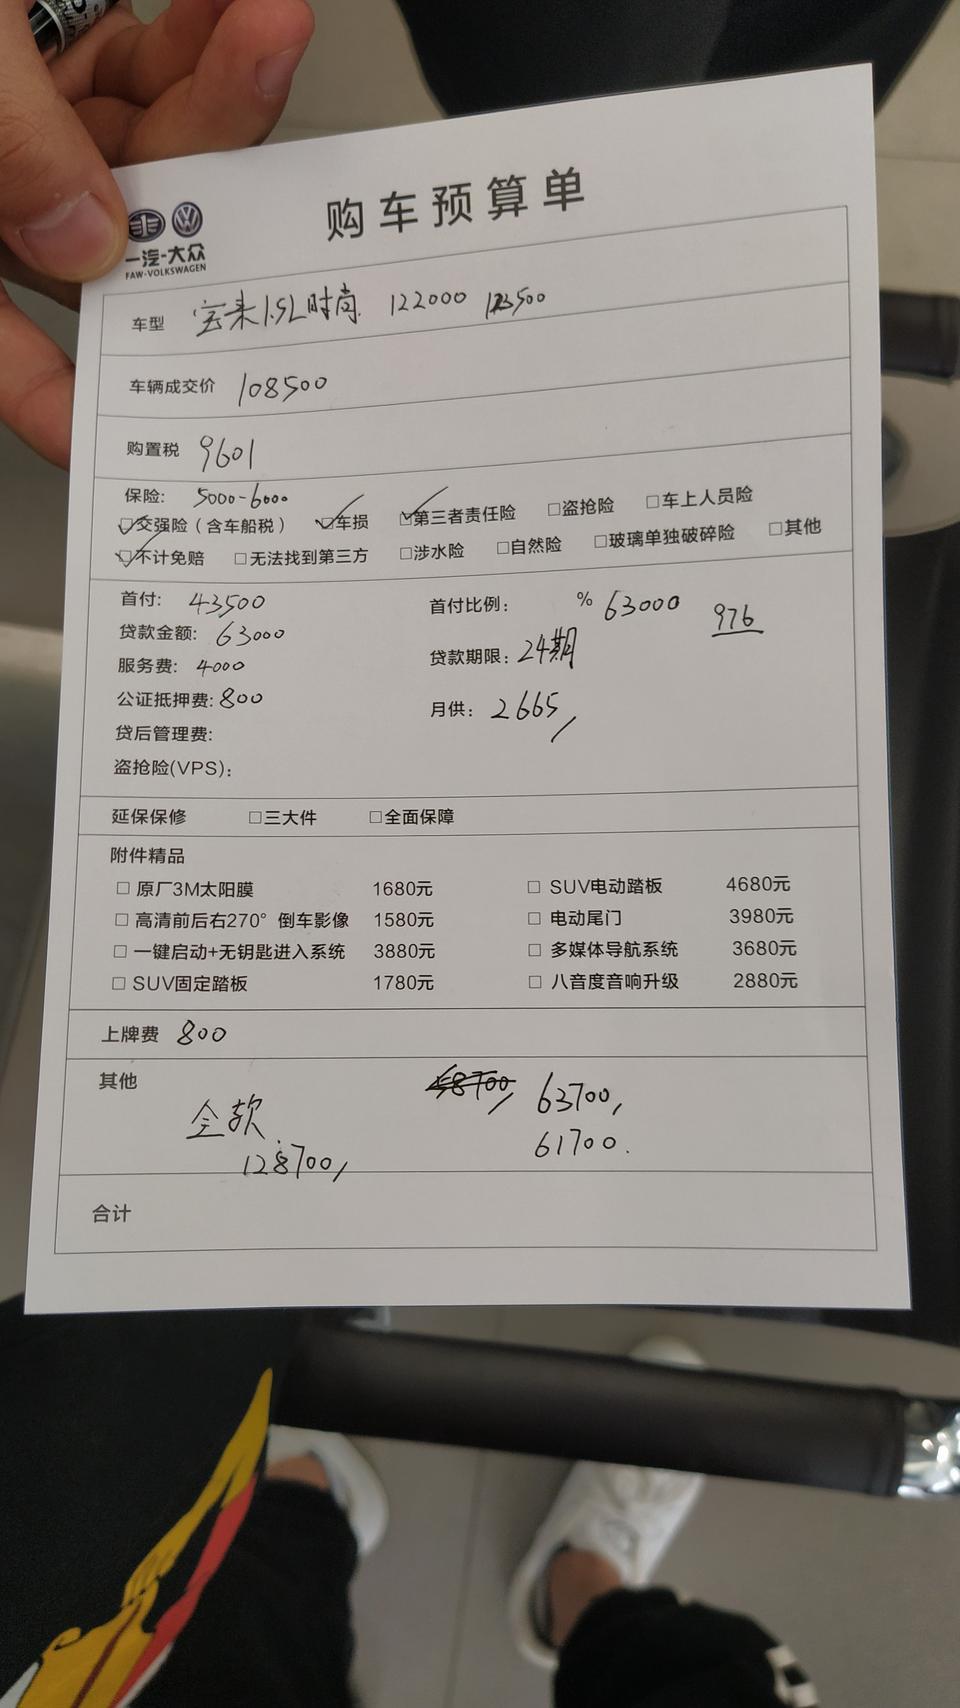 购车预算单
一汽-大众
FAW-VOLKSWAGEN
车型 宝来1.5L时尚 122000 123500
车辆成交价 108500
购置税 9601
保险: 5000-6000
交强险（含车船税） 车损 第三者责任险 盗抢险 车上人员险
不计免赔 无法找到第三方 涉水险 自然险 玻璃单独破碎险 其他
首付: 43500 首付比例: % 63000 976
贷款金额: 63000
服务费: 4000 贷款期限: 24期
公证抵押费: 800 月供: 2665
贷后管理费:
盗抢险(VPS):
延保保修 三大件 全面保障
附件精品
原厂3M太阳膜 1680元 SUV电动踏板 4680元
高清前后右270°倒车影像 1580元 电动尾门 3980元
一键启动+无钥匙进入系统 3880元 多媒体导航系统 3680元
SUV固定踏板 1780元 八音度音响升级 2880元
上牌费 800
其他 63700,
全款 61700.
128700,
合计